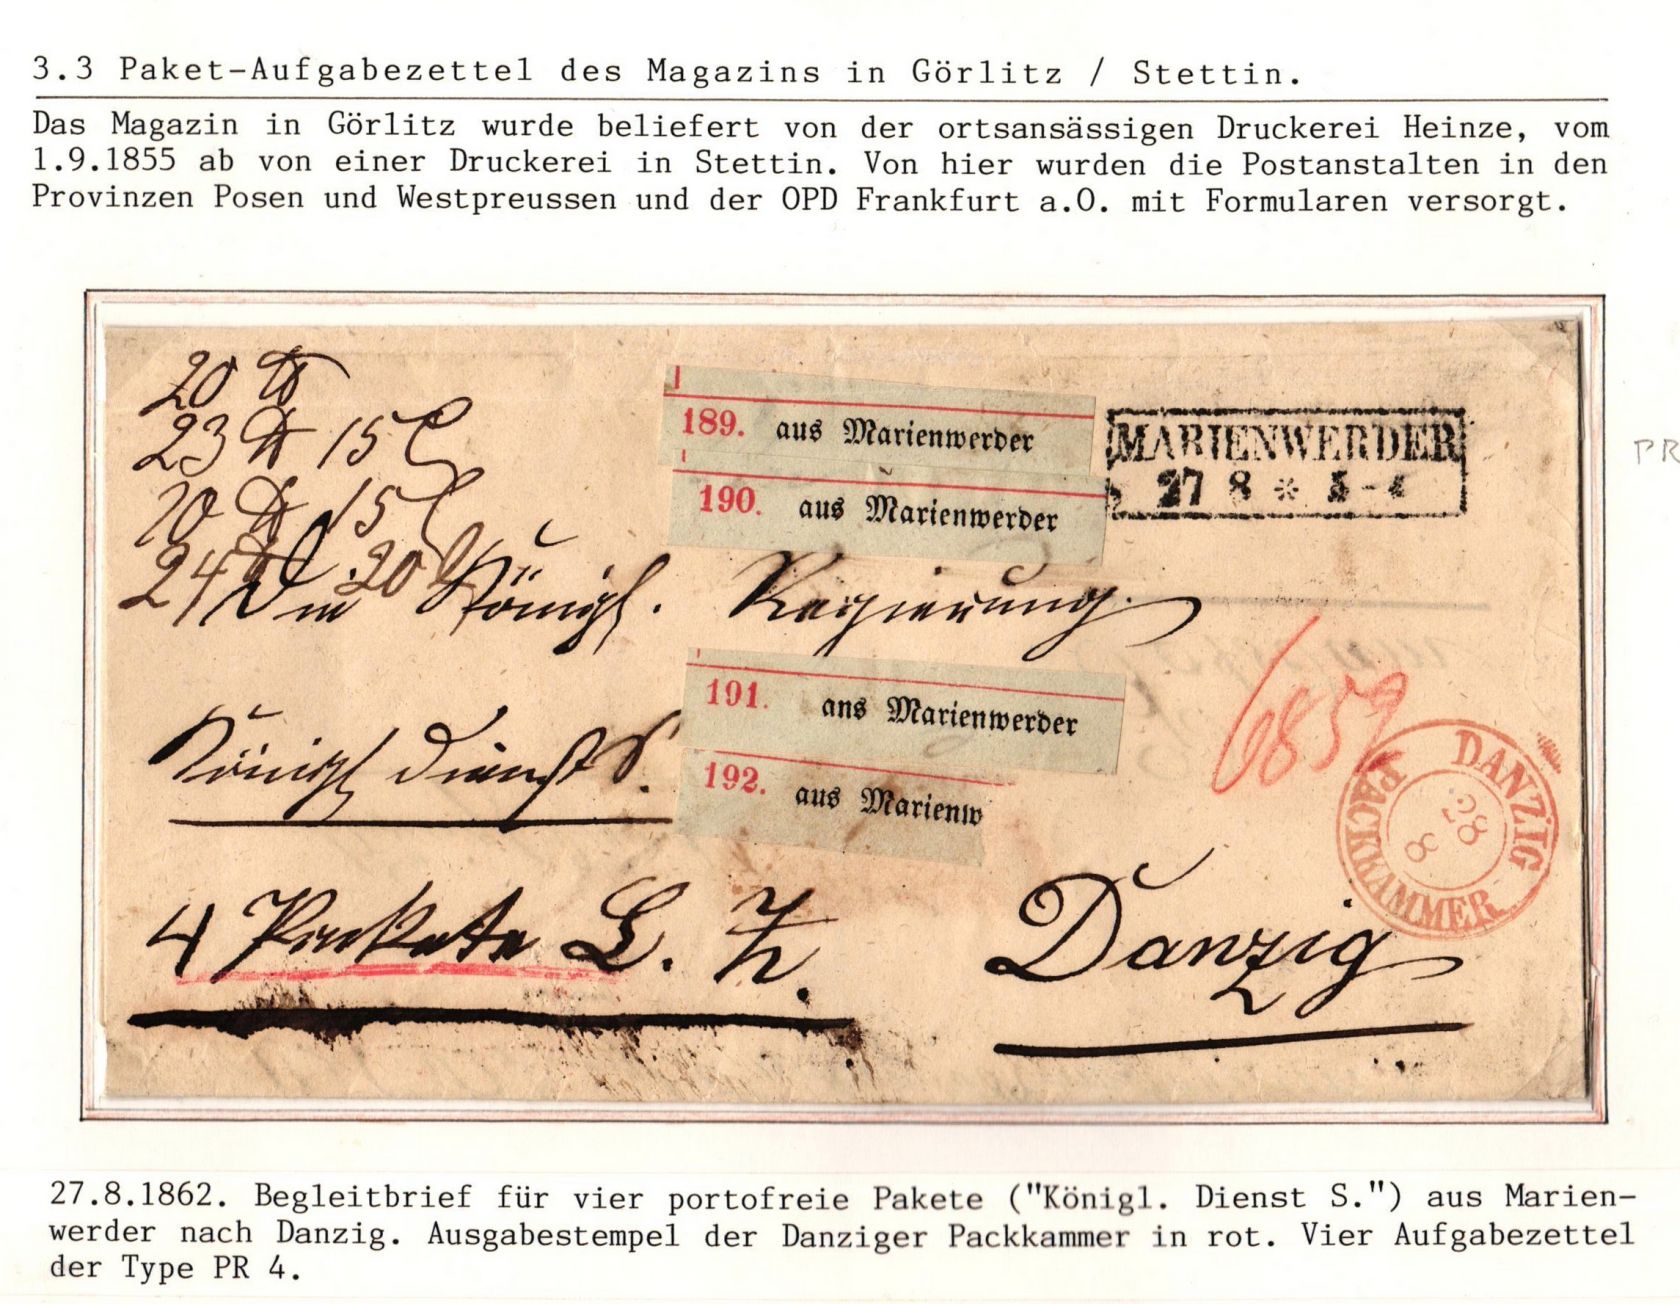 3.3 Paket-Aufgabezettel des Magazins in Görlitz / Stettin.
Das Magazin in Görlitz wurde beliefert von der ortsansässigen Druckerei Heinze, vom
1.9.1855 ab von einer Druckerei in Stettin. Von hier wurden die Postanstalten in den
Provinzen Posen und Westpreussen und der OPD Frankfurt a.O. mit Formularen versorgt.
20 ℔
23 ℔ 15
20 ℔ 15
24 20
189. aus Marienwerder
190. aus Marienwerder
MARIENWERDER
27 8 * 3-4
PR
Die Königl. Regierung.
191. ans Marienwerder
192. aus Marienw
6859
Königl Dienst S.
DANZIG
28 8
PACKKAMMER
4 Packete L. H.
Danzig
27.8.1862. Begleitbrief für vier portofreie Pakete ("Königl. Dienst S.") aus Marien-
werder nach Danzig. Ausgabestempel der Danziger Packkammer in rot. Vier Aufgabezettel
der Type PR 4.